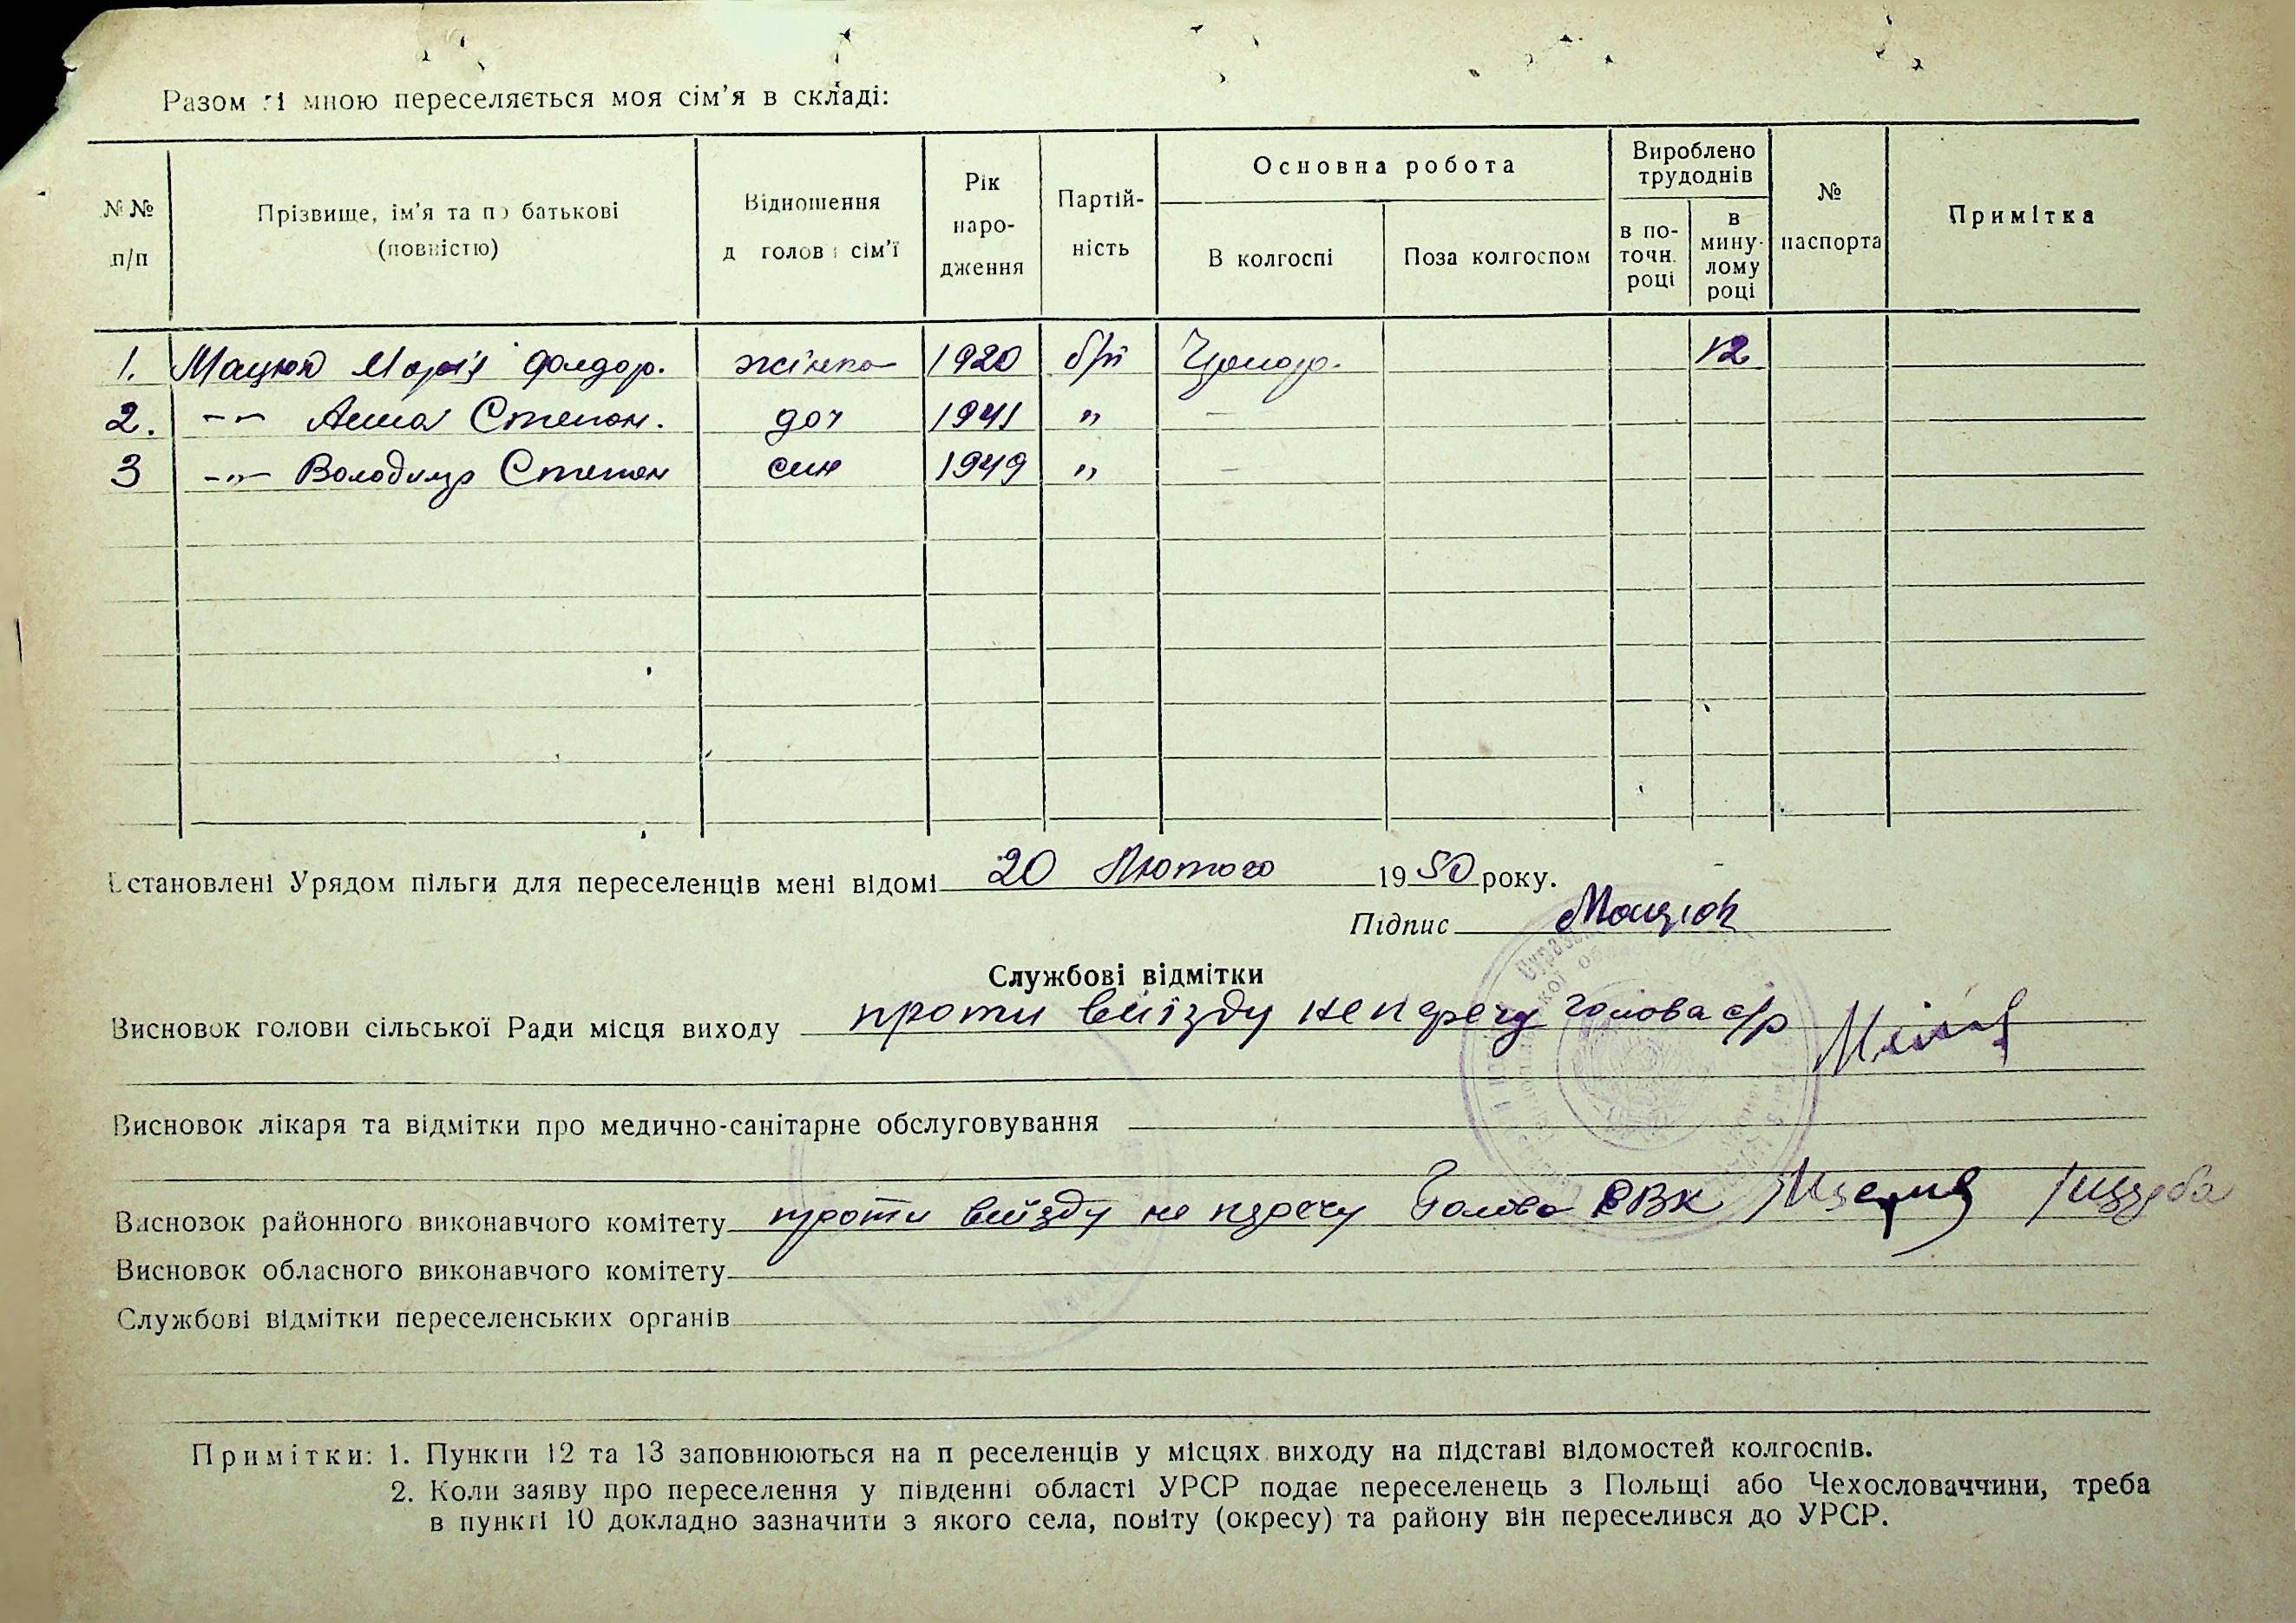 Разом зі мною переселяється моя сім'я в складі:
№№ п/п
Прізвище, ім'я та по батькові (повністю)
Відношення д голов сім'ї
Рік народження
Партійність
Основна робота
В колгоспі
Поза колгоспом
Вироблено трудоднів
в поточн. році
в минулому році
№ паспорта
Примітка
1. Мацюк Марія Федор. жінка 1920 б/п 12
2. -"- Анна Степан. доч 1941 " –
3 -"- Володимир Степан син 1949 " –
Встановлені Урядом пільги для переселенців мені відомі 20 Лютого 1950 року.
Підпис Мацюк
Службові відмітки
Висновок голови сільської Ради місця виходу проти виїзду не пэречу голова с/р
Висновок лікаря та відмітки про медично-санітарне обслуговування
Висновок районного виконавчого комітету проти виїзду не пэречу Голова РВК
Висновок обласного виконавчого комітету
Службові відмітки переселенських органів
Примітки: 1. Пункти 12 та 13 заповнюються на п реселенців у місцях виходу на підставі відомостей колгоспів.
2. Коли заяву про переселення у південні області УРСР подає переселенець з Польщі або Чехословаччини, треба
в пункті 10 докладно зазначити з якого села, повіту (окресу) та району він переселився до УРСР.